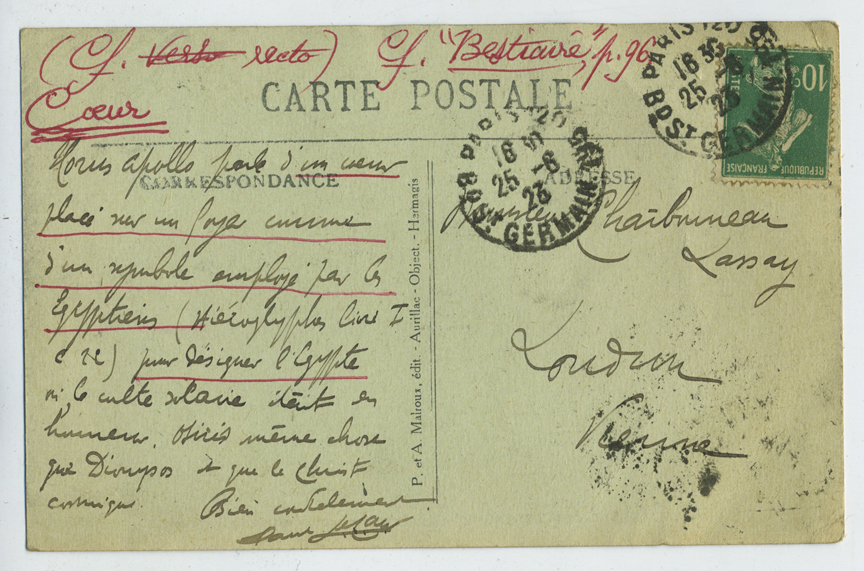 (Cf. Verso recto) Cf. "Bestiaire", p. 96
Cœur
CARTE POSTALE
CORRESPONDANCE
ADRESSE
Horus apollo parle d'un cœur
placé sur un foyer comme
d'un symbole employé par les
Egyptiens (Hiéroglyphes livre I
c 22) pour désigner l'Egypte
où le culte solaire était en
honneur. Osiris même chose
que Dionysos et que le Christ
cosmique. Bien cordialement
P. et A. Malroux, édit. - Aurillac - Object. - Hermagis
Monsieur Charbonneau
Lassay
Loudun
Vienne
PARIS 120
16 30
25 -6
23
BD ST GERMAIN
PARIS 120
16 30
25 -6
23
BD ST GERMAIN
10c
REPUBLIQUE FRANÇAISE